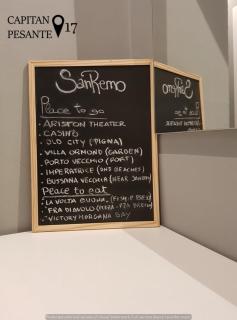 CAPITAN
PESANTE 17
SanRemo
Place to go
- ARISTON THEATER
- CASINÒ
- OLD CITY (PIGNA)
- VILLA ORMOND (GARDEN)
- PORTO VECCHIO (PORT)
- IMPERATRICE (AND BEACHES)
- BUSSANA VECCHIA (NEAR SANREMO)
Peace to eat
- LA VOLTA BUONA
- FRA DIAVOLO (PIZZA
- VICTORY MORGANA BAY
SanRemo